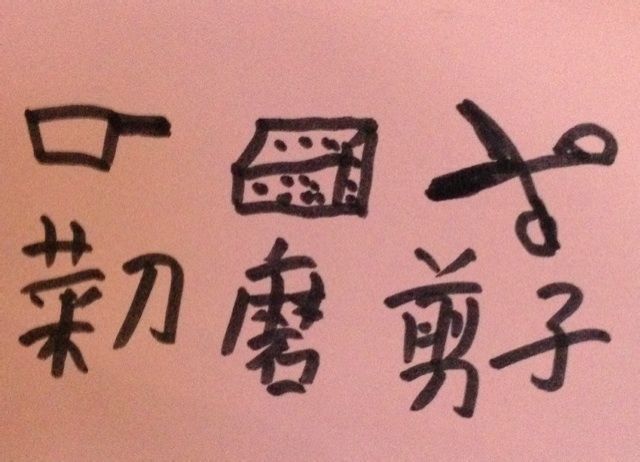 菜刀 磨 剪子